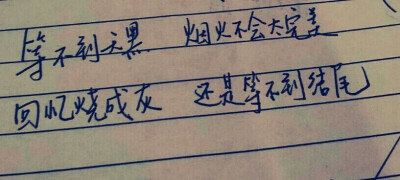 等不到天黑 烟火不会太完美
回忆烧成灰 还是等不到结尾